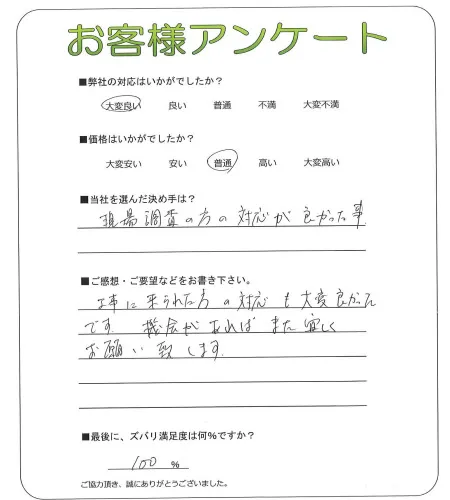 お客様アンケート
■弊社の対応はいかがでしたか？
大変良い 良い 普通 不満 大変不満
■価格はいかがでしたか？
大変安い 安い 普通 高い 大変高い
■当社を選んだ決め手は？
現場調査の方の対応が良かった事
■ご感想・ご要望などをお書き下さい。
工事に来られた方の対応も大変良かった
です 機会があればまた宜しく
お願い致します
■最後に、ズバリ満足度は何％ですか？
100 %
ご協力頂き、誠にありがとうございました。